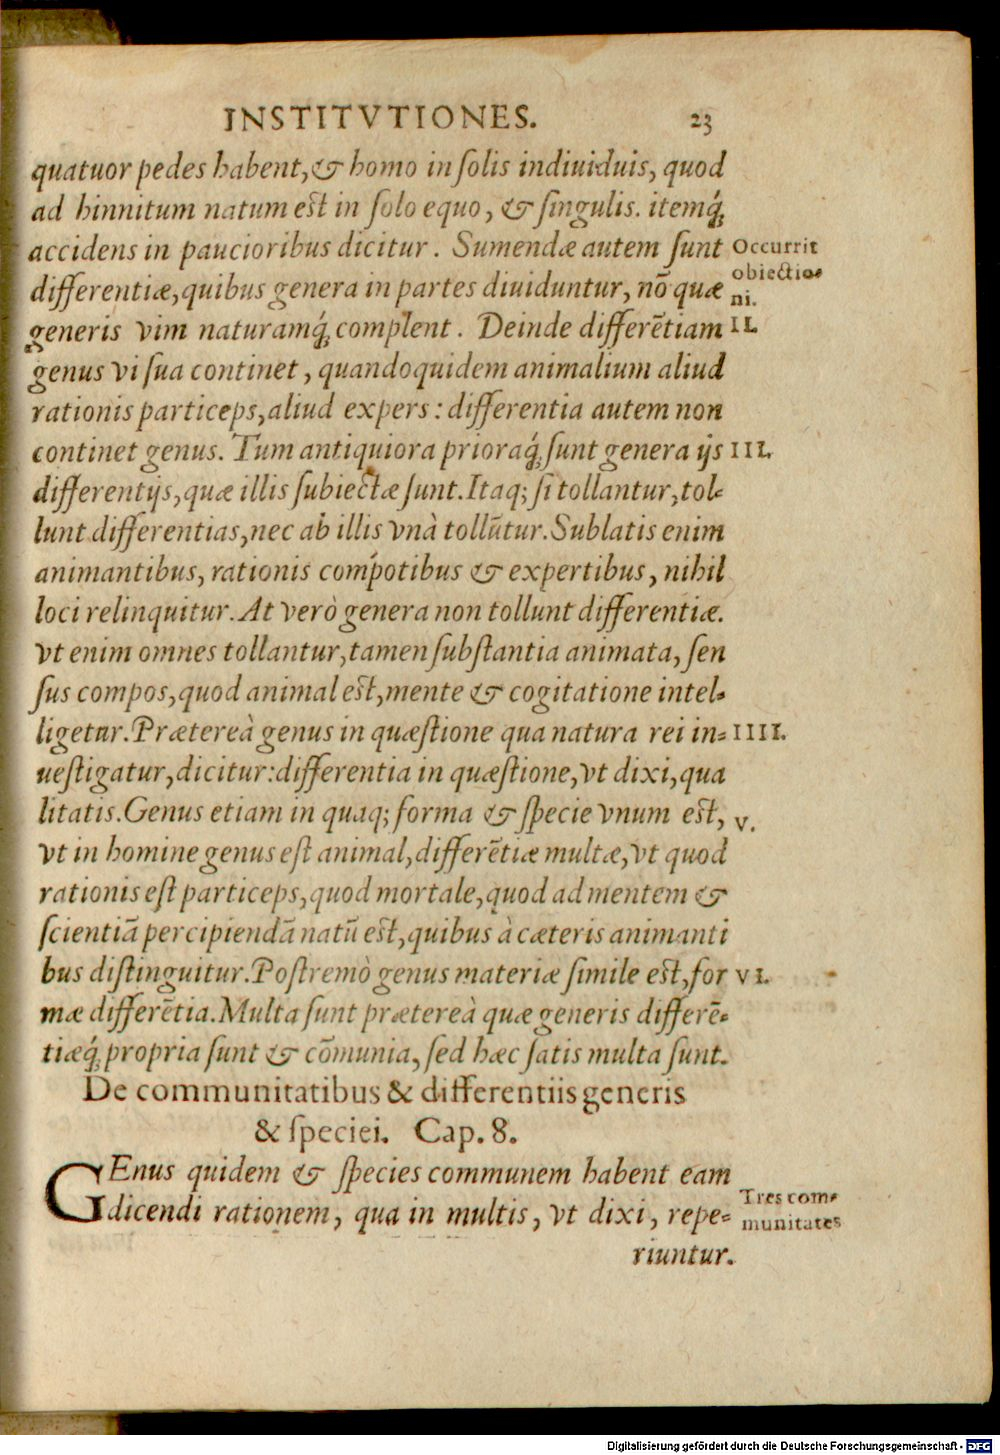 INSTITVTIONES. 23
quatuor pedes habent, & homo in ſolis indiuiduis, quod
ad hinnitum natum eſt in ſolo equo, & ſingulis. itemq́;
accidens in paucioribus dicitur. Sumendæ autem ſunt
Occurrit
differentiæ, quibus genera in partes diuiduntur, nō quæ
obiectio-
ni.
generis vim naturamq́; complent. Deinde differētiam
II.
genus vi ſua continet, quandoquidem animalium aliud
rationis particeps, aliud expers: differentia autem non
continet genus. Tum antiquiora prioraq́; ſunt genera ijs
III.
differentijs, quæ illis ſubiectæ ſunt. Itaq; ſi tollantur, tol-
lunt differentias, nec ab illis vnà tollūtur. Sublatis enim
animantibus, rationis compotibus & expertibus, nihil
loci relinquitur. At verò genera non tollunt differentiæ.
vt enim omnes tollantur, tamen ſubſtantia animata, ſen
ſus compos, quod animal eſt, mente & cogitatione intel-
ligetur. Prætereà genus in quæſtione qua natura rei in-
IIII.
ueſtigatur, dicitur: differentia in quæſtione, vt dixi, qua
litatis. Genus etiam in quaq; forma & ſpecie vnum eſt,
V.
vt in homine genus eſt animal, differētiæ multæ, vt quod
rationis eſt particeps, quod mortale, quod ad mentem &
ſcientiā percipiendā natū eſt, quibus à cæteris animanti
bus diſtinguitur. Poſtremò genus materiæ ſimile eſt, for
VI.
mæ differētia. Multa ſunt prætereà quæ generis differē-
tiæq́; propria ſunt & cōmunia, ſed hæc ſatis multa ſunt.
De communitatibus & differentiis generis
& ſpeciei. Cap. 8.
GEnus quidem & ſpecies communem habent eam
dicendi rationem, qua in multis, vt dixi, repe-
Tres com-
munitates
riuntur.
Digitalisierung gefördert durch die Deutsche Forschungsgemeinschaft - DFG